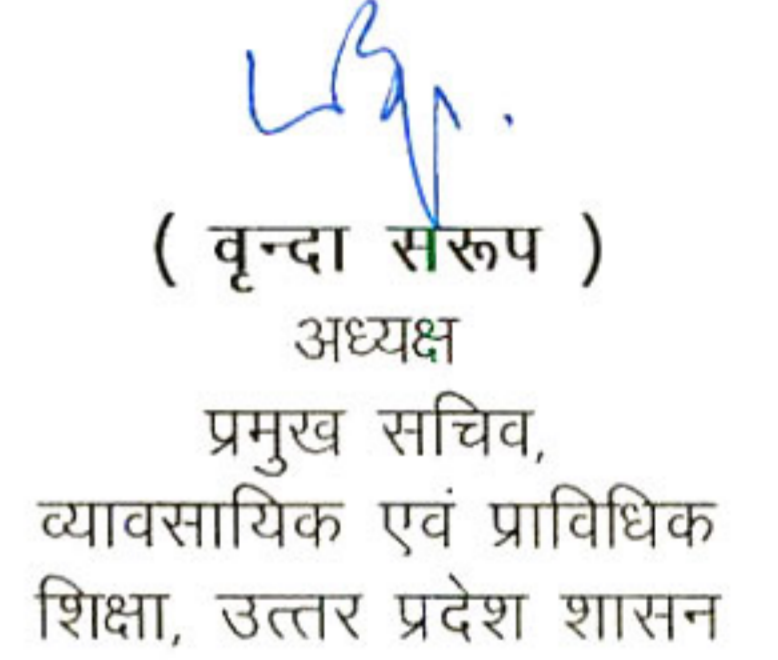 ( वृन्दा सरूप )
अध्यक्ष
प्रमुख सचिव,
व्यावसायिक एवं प्राविधिक
शिक्षा, उत्तर प्रदेश शासन